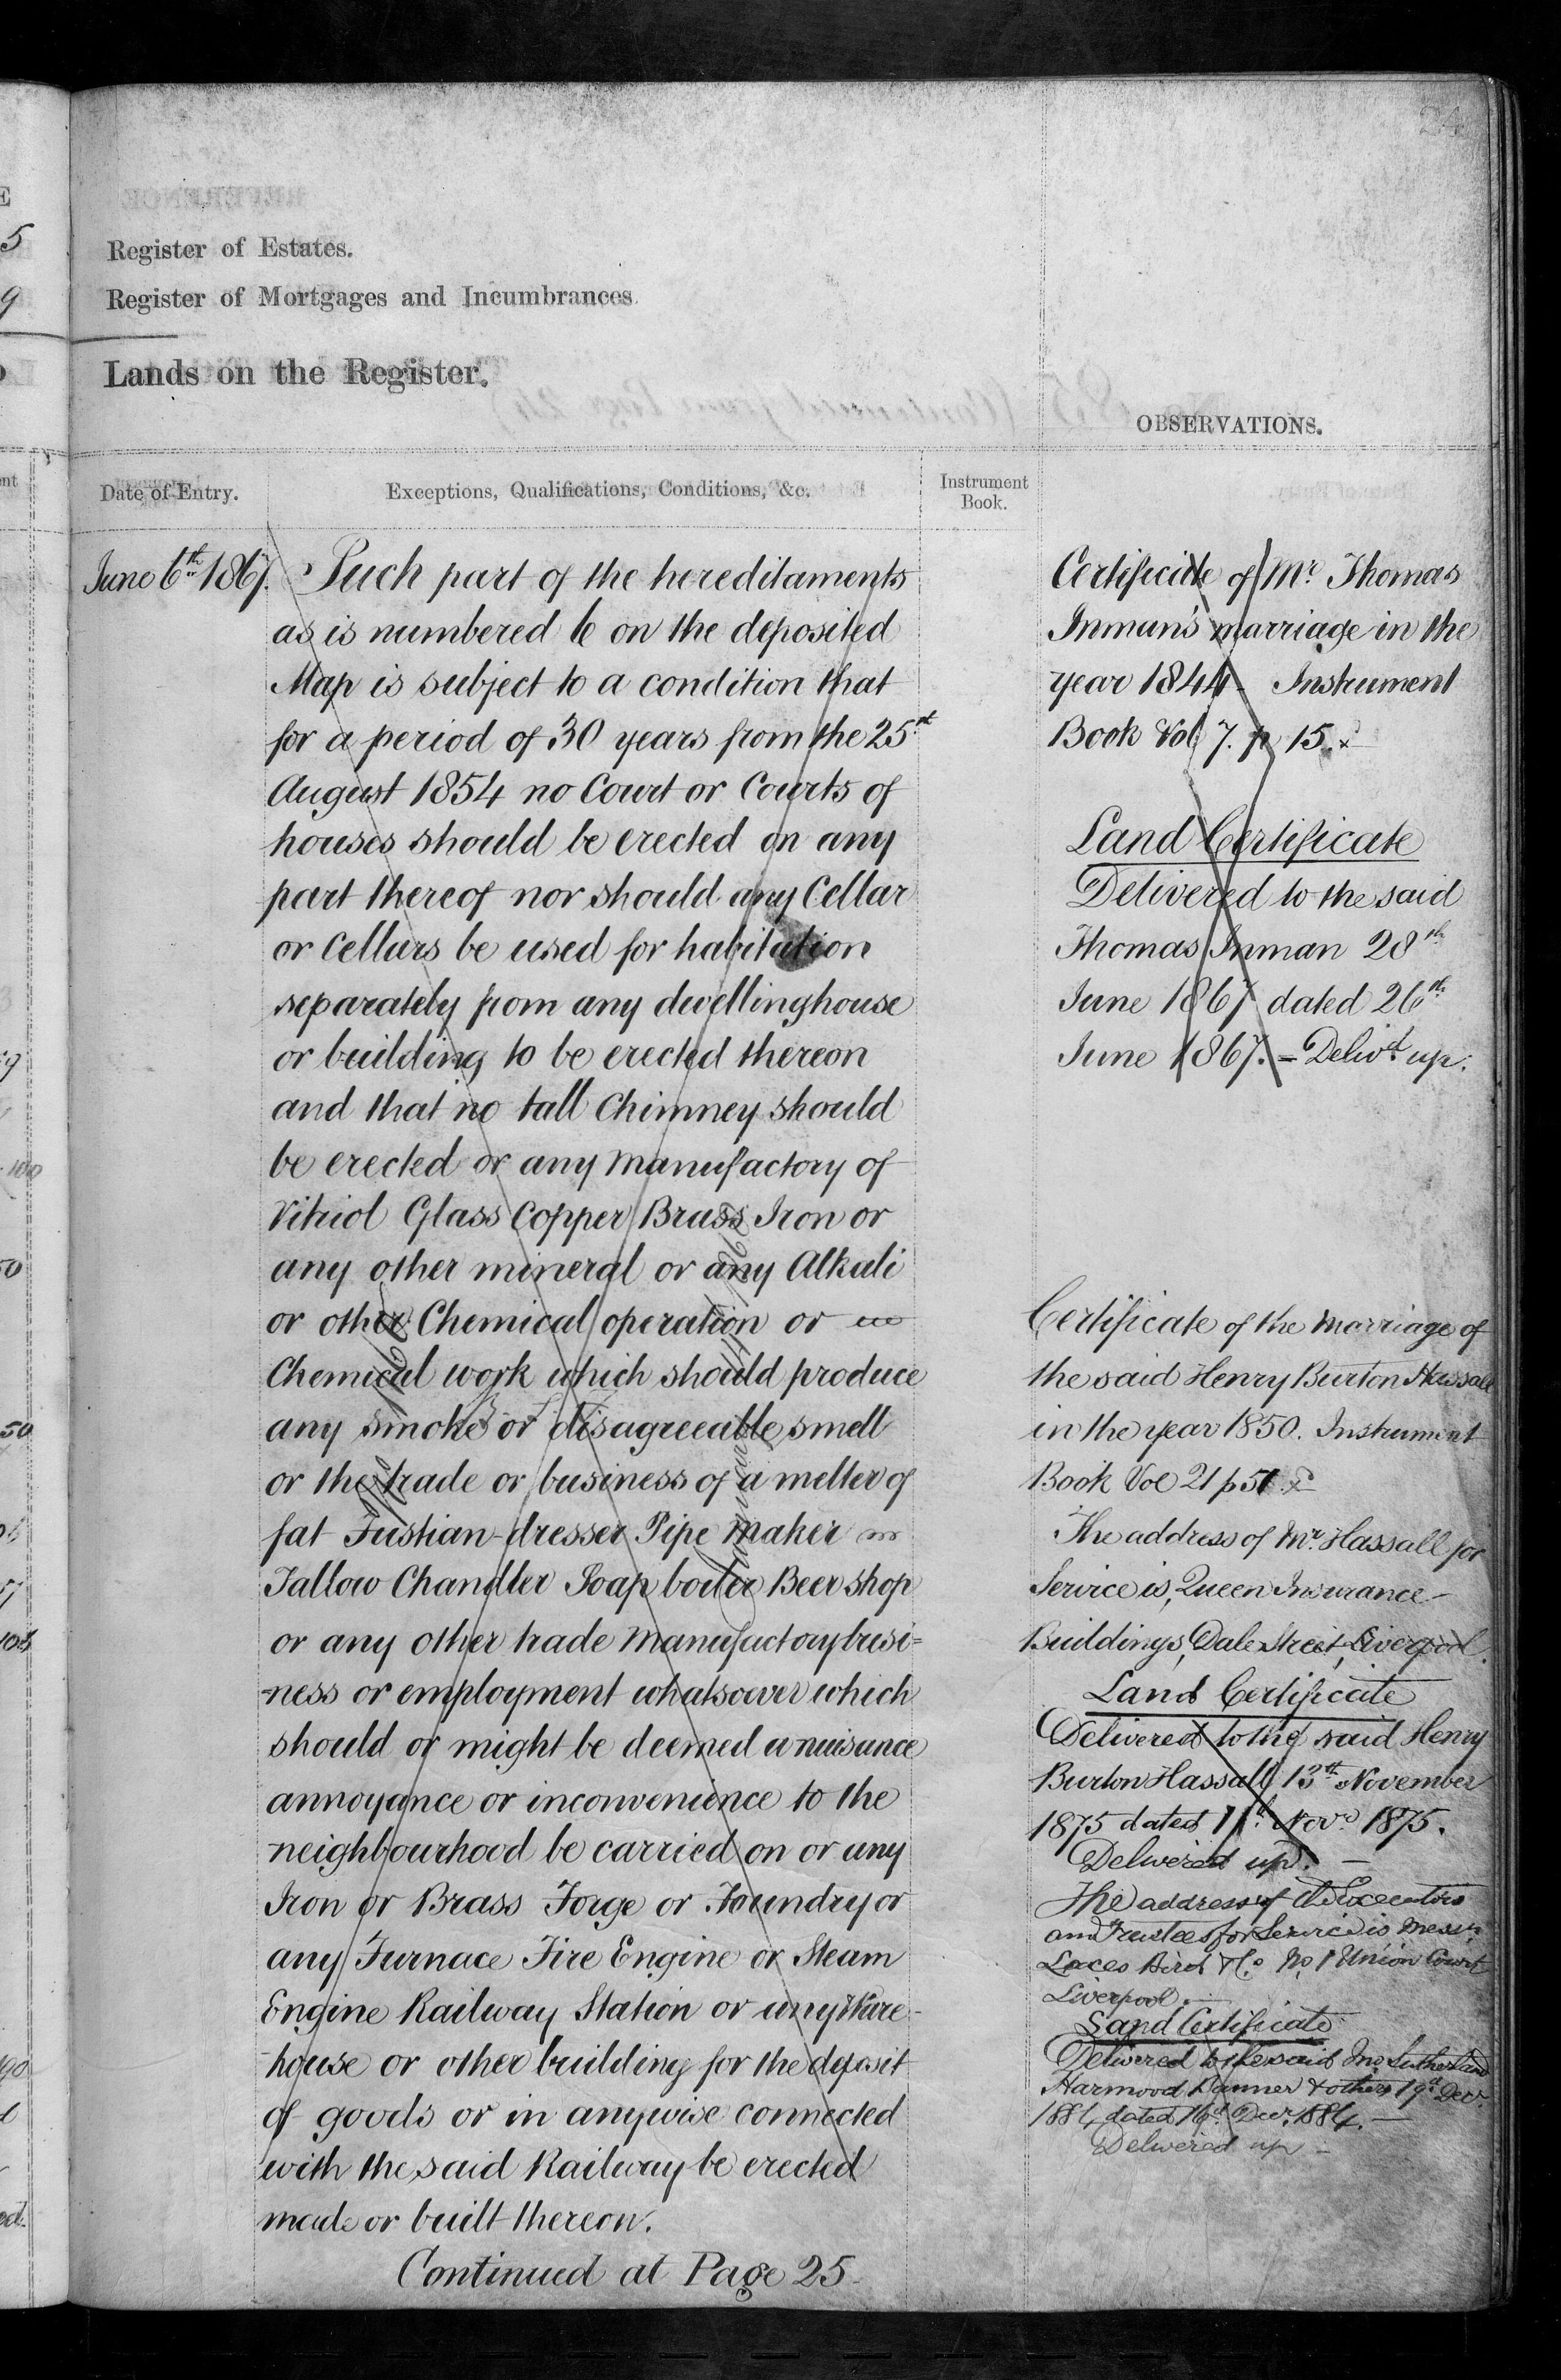 24
Register of Estates.
Register of Mortgages and Incumbrances.
Lands on the Register.
OBSERVATIONS.
Date of Entry.
Exceptions, Qualifications, Conditions, &c.
Instrument
Book.
June 6th 1867.
Such part of the hereditaments
as is numbered 6 on the deposited
Map is subject to a condition that
for a period of 30 years from the 25th
August 1854 no Court or Courts of
houses should be erected on any
part thereof nor should any Cellar
or Cellars be used for habitation
separately from any dwellinghouse
or building to be erected thereon
and that no tall Chimney should
be erected or any manufactory of
Vitriol Glass Copper Brass Iron or
any other mineral or any Alkali
or other Chemical operation or
Chemical work which should produce
any smoke or disagreeable smell
or the trade or business of a melter of
fat Fustian-dresser Pipe maker
Tallow Chandler Soap boiler Beer shop
or any other trade manufactory busi=
-ness or employment whatsoever which
should or might be deemed a nuisance
annoyance or inconvenience to the
neighbourhood be carried on or any
Iron or Brass Forge or Foundry or
any Furnace Fire Engine or Steam
Engine Railway Station or any Ware-
-house or other building for the deposit
of goods or in anywise connected
with the said Railway be erected
made or built thereon.
Continued at Page 25
Certificate of Mr. Thomas
Inman's marriage in the
year 1844 - Instrument
Book Vol 7. p 15.
Land Certificate
Delivered to the said
Thomas Inman 28th
June 1867 dated 26th
June 1867. - Delivd. up.
Certificate of the Marriage of
the said Henry Burton Hassall
in the year 1850. Instrument
Book Vol 21 p 51
The address of Mr. Hassall for
Service is, Queen Insurance
Buildings, Dale Street, Liverpool.
Land Certificate
Delivered to the said Henry
Burton Hassall 13th November
1875 dated 11th Novr. 1875.
Delivered up. -
The address of the Executors
and Trustees for Service is Messrs.
Laces Bird & Co. No 1 Union Court
Liverpool. -
Land Certificate
Delivered to the said Jno Sutherland
Harmood Banner & others 19th Decr.
1884 dated 16th Decr. 1884. -
Delivered up -